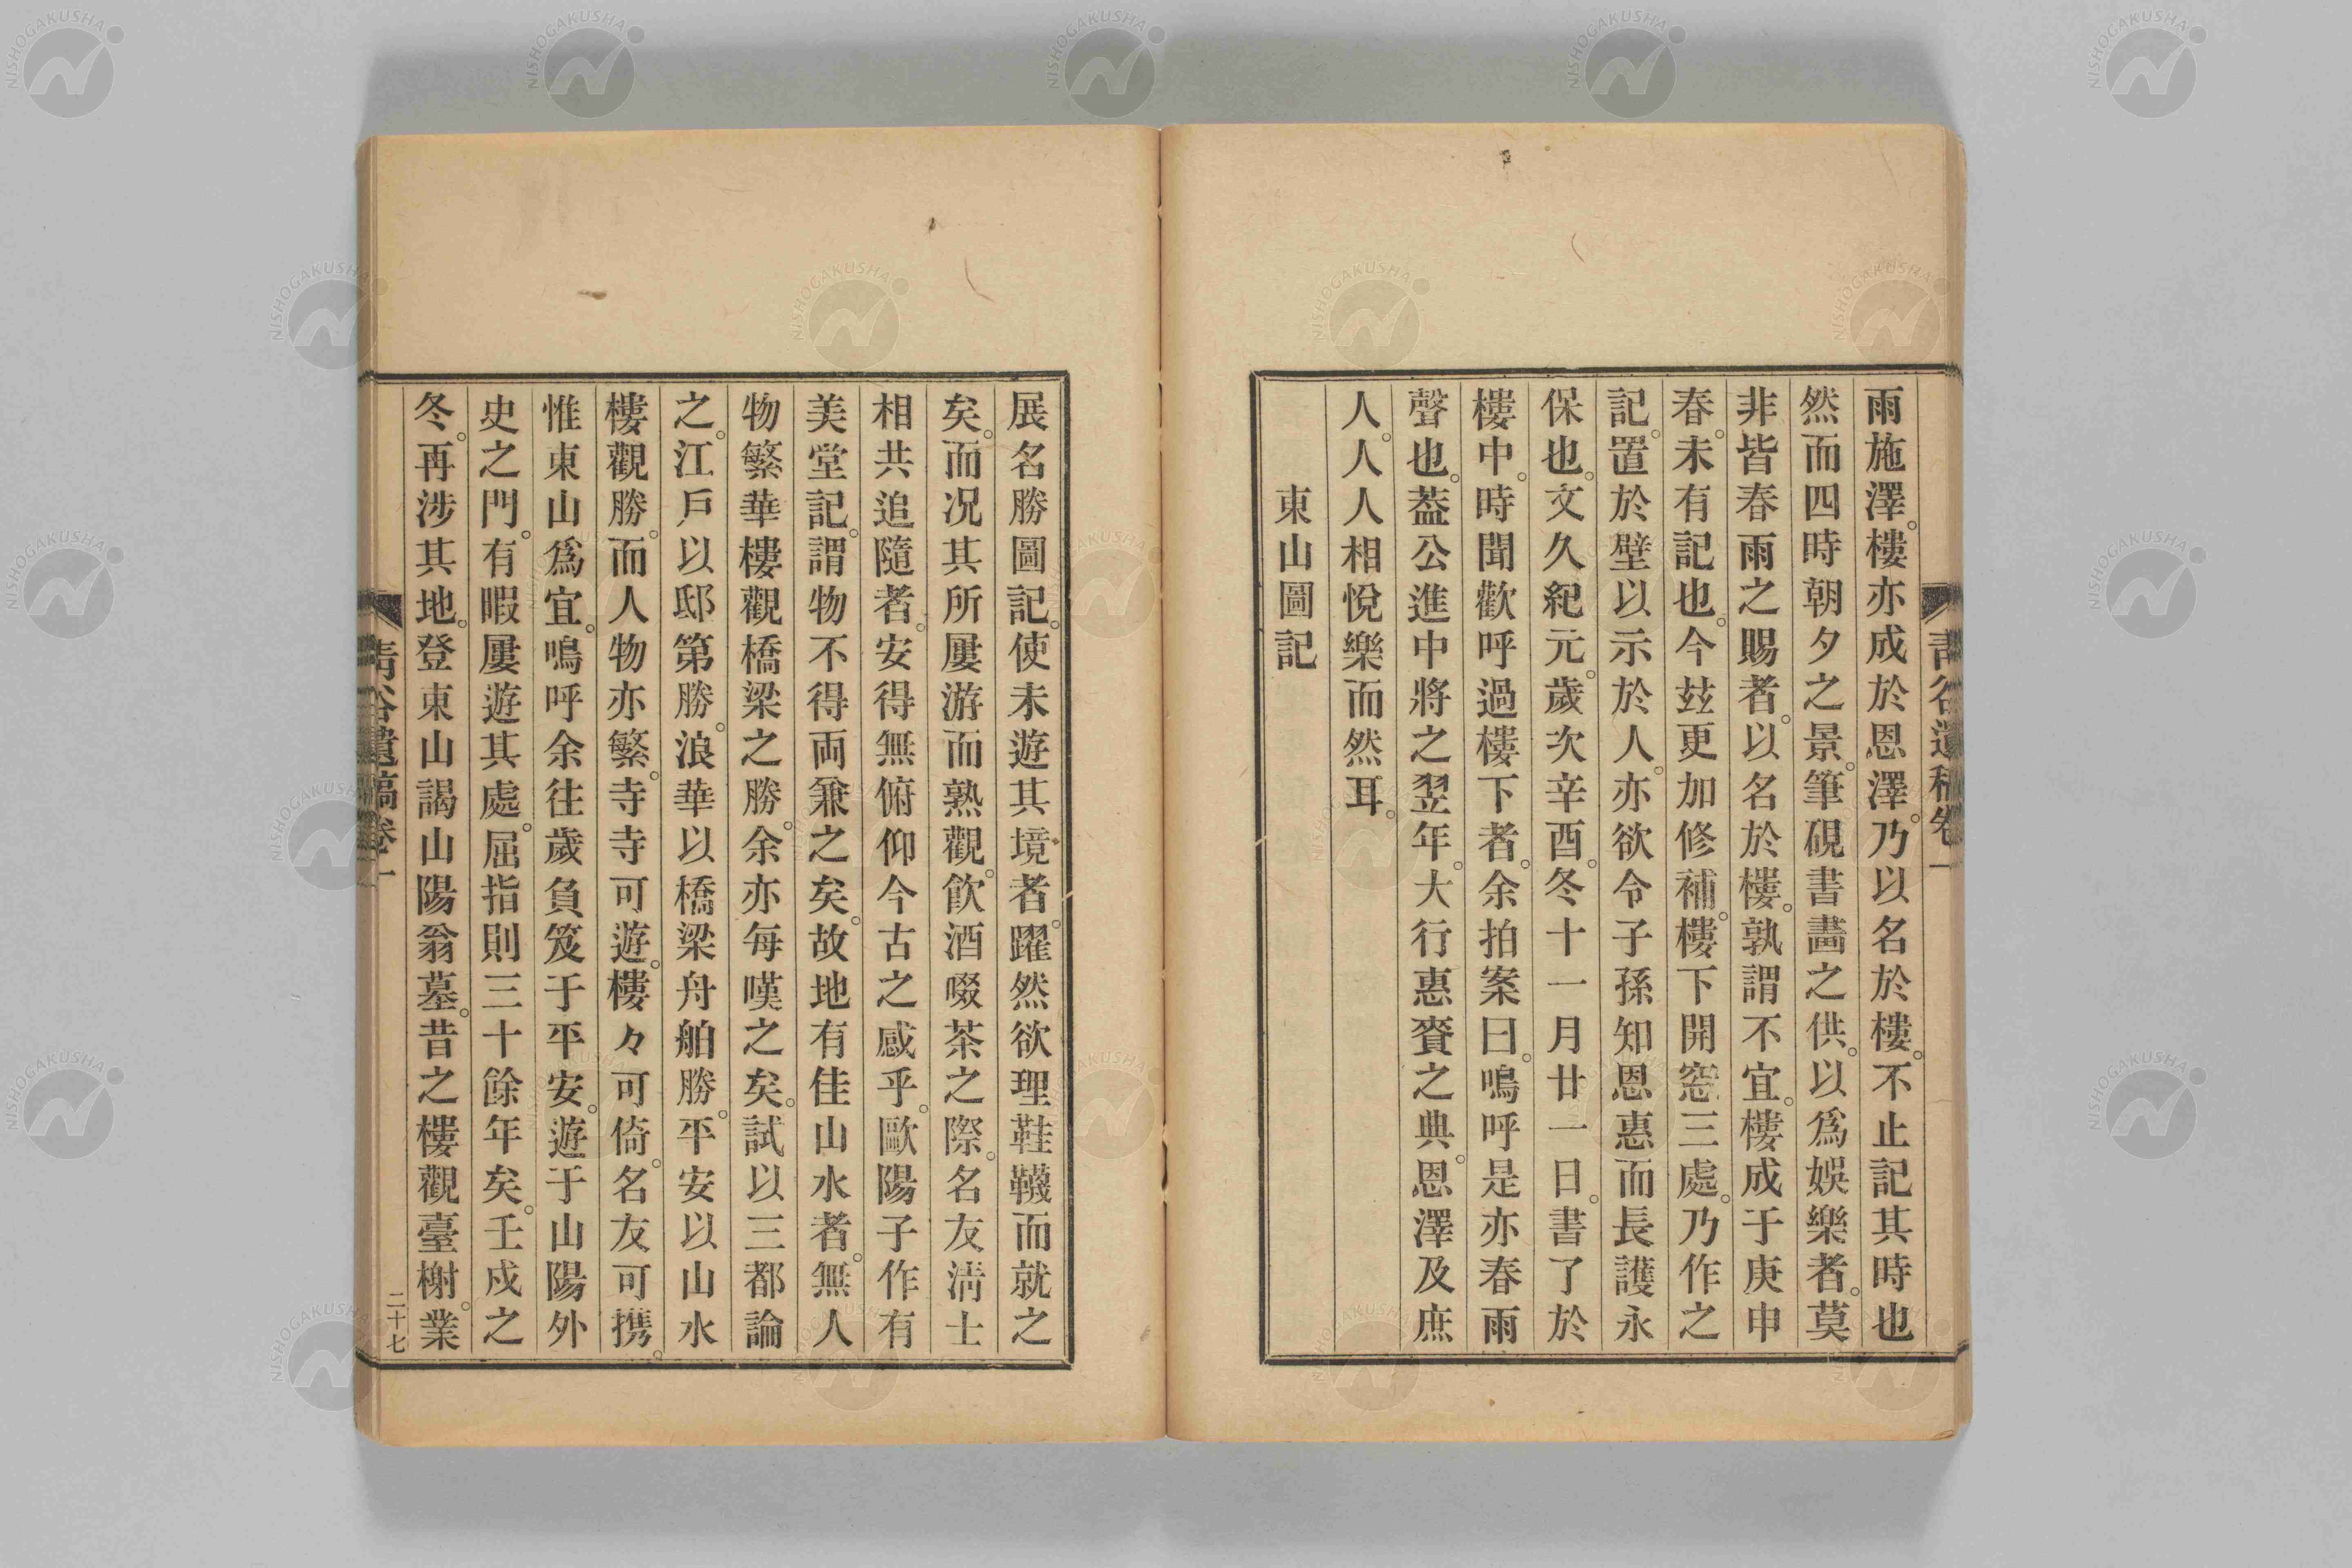 雨施澤。樓亦成於恩澤。乃以名於樓。不止記其時也
然而四時朝夕之景。筆硯書畵之供。以爲娛樂者。莫
非皆春雨之賜者。以名於樓。孰謂不宜。樓成于庚申
春。未有記也。今玆更加修補。樓下開窓三處。乃作之
記。置於壁以示於人。亦欲令子孫知恩惠而長護永
保也。文久紀元。歲次辛酉。冬十一月廿一日。書了於
樓中。時聞歡呼過樓下者。余拍案曰。嗚呼是亦春雨
聲也。葢公進中將之翌年。大行惠賚之典。恩澤及庶
人。人人相悅樂而然耳。
東山圖記
展名勝圖記。使未遊其境者。躍然欲理鞋韈而就之
矣。而況其所屢游而熟觀。飮酒啜茶之際。名友淸士
相共追隨者。安得無俯仰今古之感乎。歐陽子作有
美堂記。謂物不得両兼之矣。故地有佳山水者。無人
物繁華樓觀橋梁之勝。余亦每嘆之矣。試以三都論
之。江戶以邸第勝。浪華以橋梁舟舶勝。平安以山水
樓觀勝。而人物亦繁。寺寺可遊。樓々可倚。名友可携。
惟東山爲宜。嗚呼余往歲負笈于平安。遊于山陽外
史之門。有暇屢遊其處。屈指則三十餘年矣。壬戌之
冬。再涉其地。登東山謁山陽翁墓。昔之樓觀臺榭。業
靑谷遺稿卷一
二十七
NISHOGAKUSHA